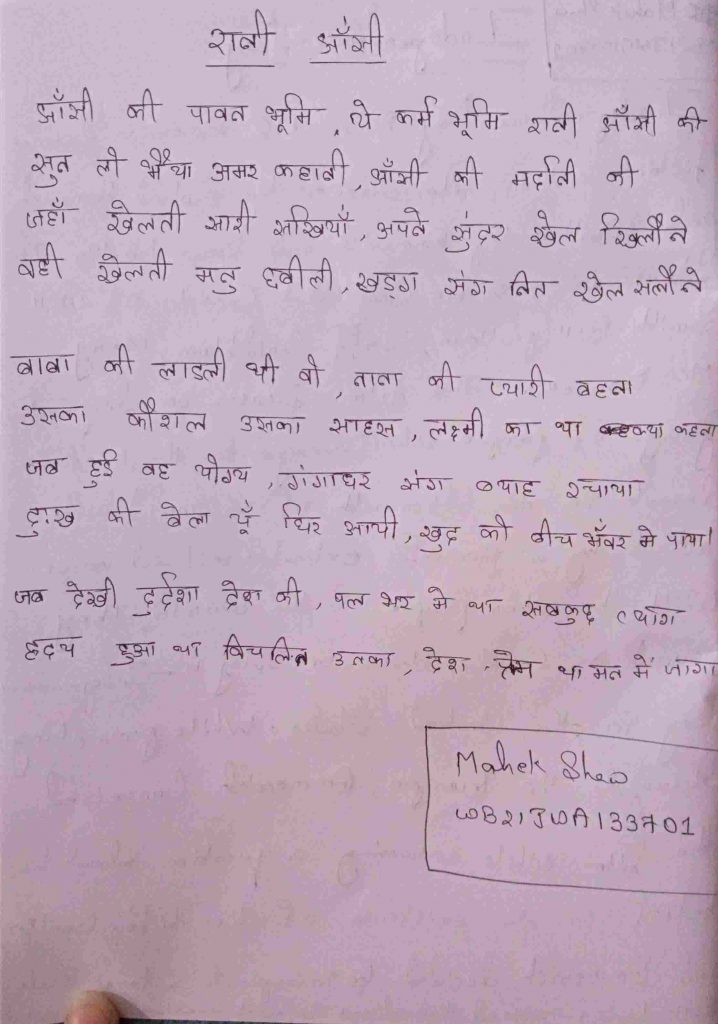 रानी झाँसी
झाँसी की पावन भूमि, ये कर्म भूमि रानी झाँसी की
सुन लो भैया अमर कहानी, झाँसी की मर्दानी की
जहाँ खेलती सारी सखियाँ, अपने सुंदर खेल खिलौने
वही खेलती मनु छबीली, खड्ग संग नित खेल सलौने
बाबा की लाडली थी वो, नाना की प्यारी बहना
उसका कौशल उसका साहस, लक्ष्मी का था क्या कहना
जब हुई वह योग्य, गंगाधर संग ब्याह रचाया
दुःख की बेला यूँ घिर आयी, खुद को बीच भँवर मे पाया।
जब देखी दुर्दशा देश की, पल भर मे था सबकुछ त्याग
हृदय हुआ था विचलित उनका, देश प्रेम था मन में जागा
Mahek Shaw
WB21JWA133701